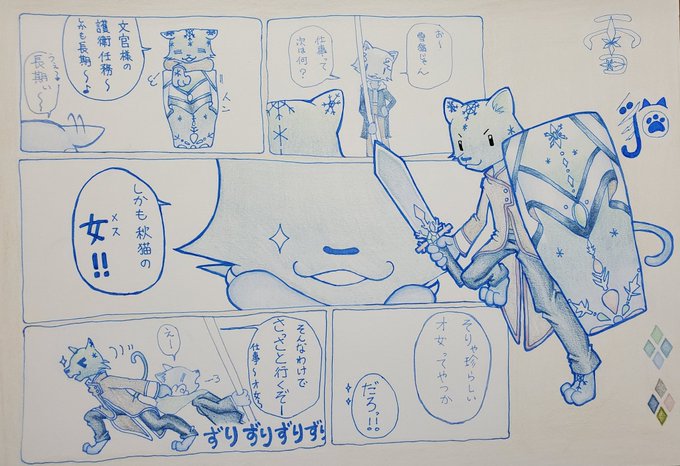 お〜
雪猫じゃん
仕事って
次は何?
文官様の
護衛任務〜
しかも長期〜♪
長期ぃ〜
しかも秋猫の
女!!
メス
そりゃ珍らしい
才女ってやつか
だろ!!
そんなわけで
さっさと行くぞー
えー
ずりずりずりずり